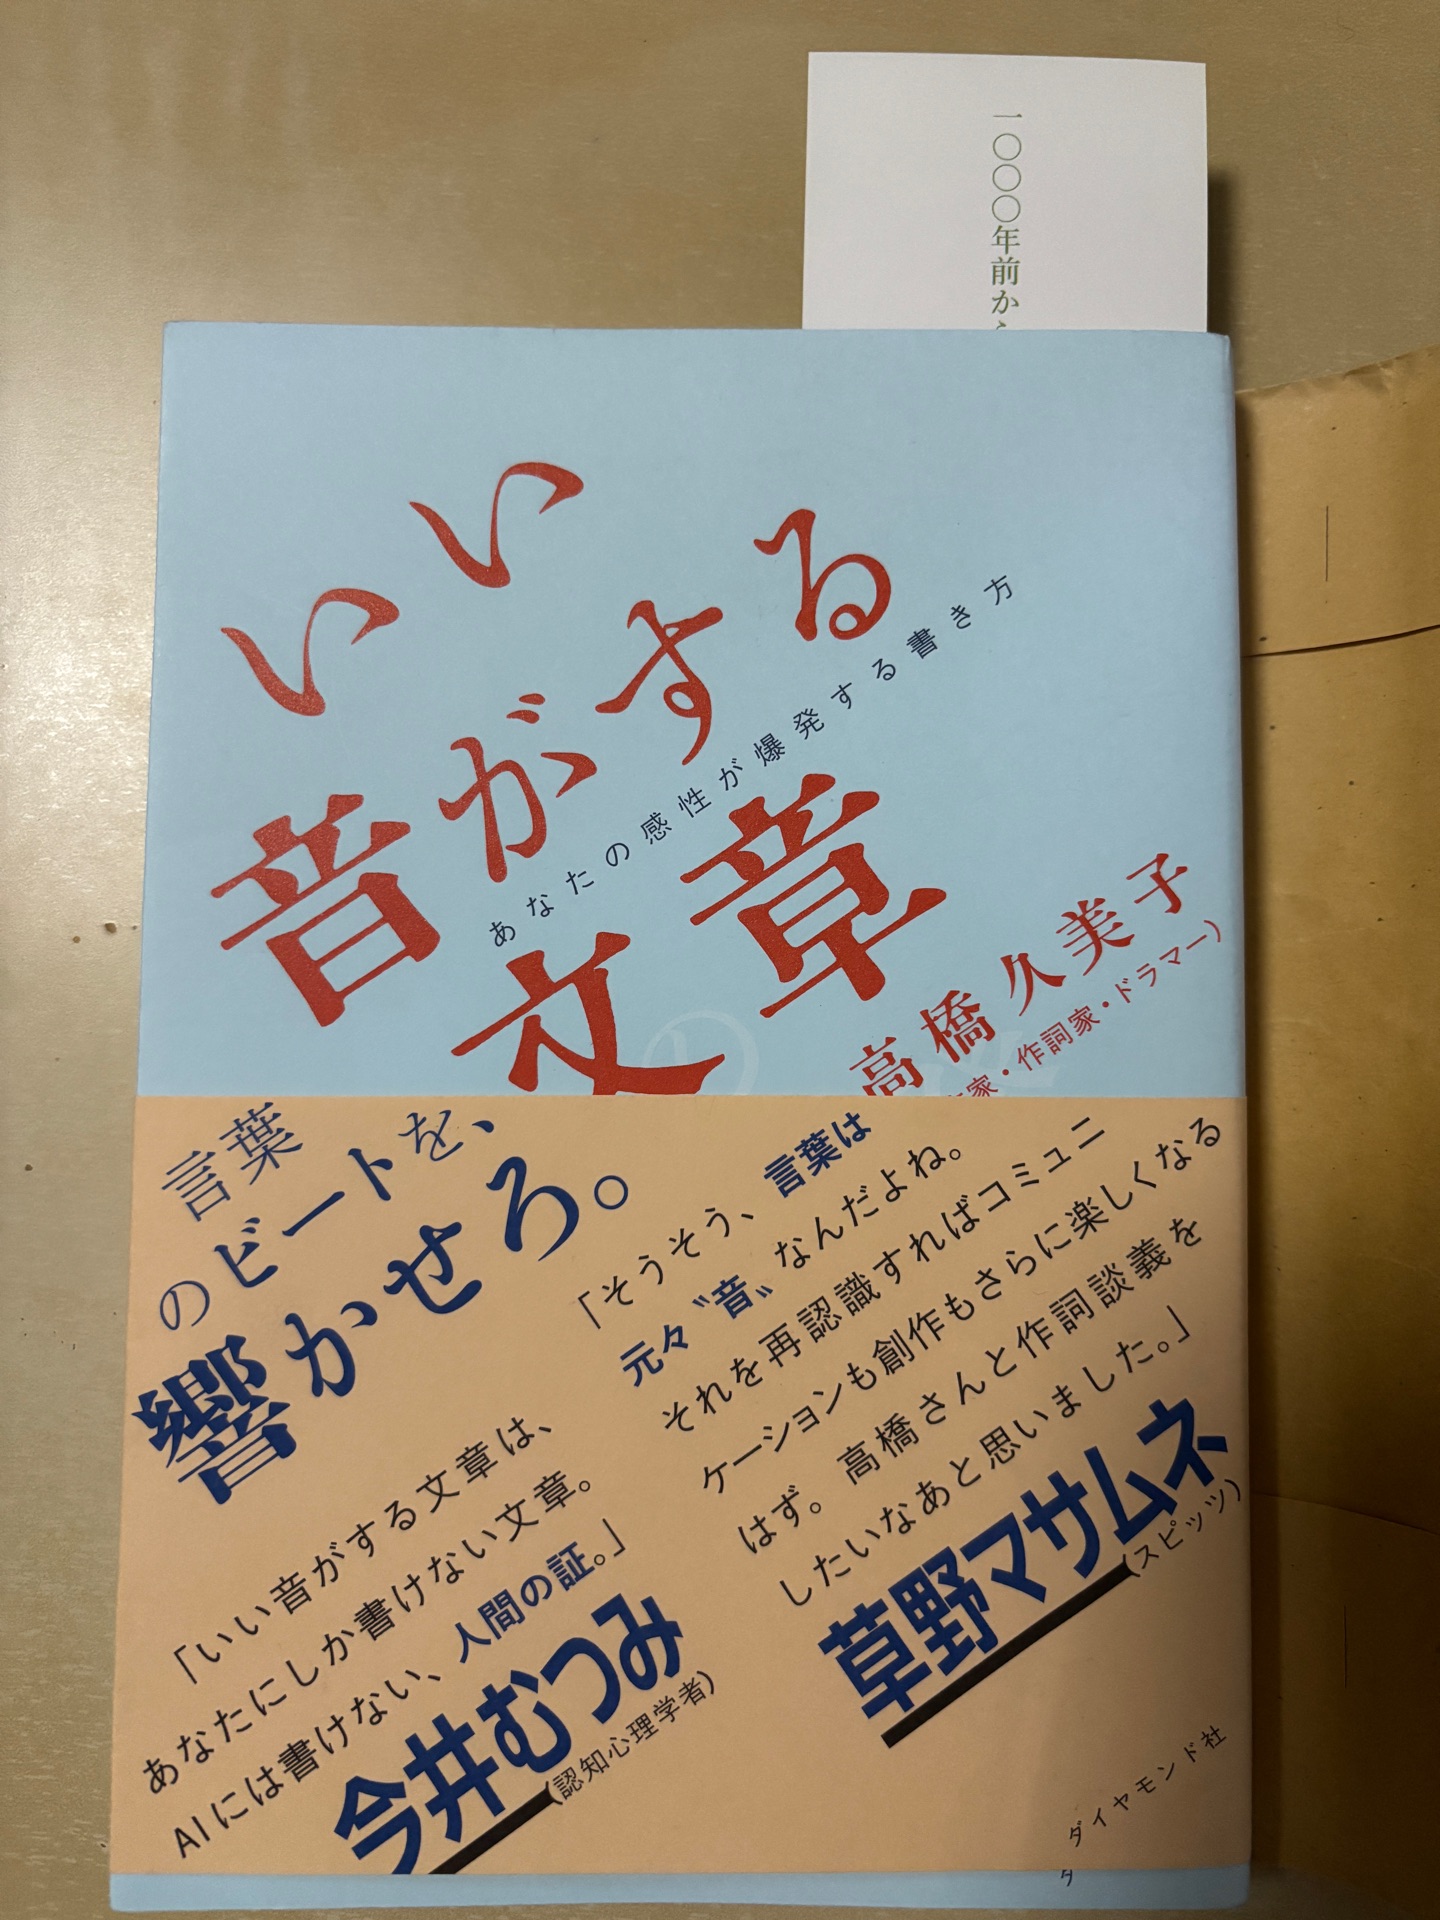 一〇〇〇年前か
いい
音がする
あなたの感性が爆発する書き方
文章
高橋久美子
家・作詞家・ドラマー）
言葉
のビートを、
響かせろ。
「そうそう、言葉は
元々〝音〟なんだよね。
それを再認識すればコミュニ
ケーションも創作もさらに楽しくなる
はず。高橋さんと作詞談義を
したいなあと思いました。」
草野マサムネ
（スピッツ）
「いい音がする文章は、
あなたにしか書けない文章。
AIには書けない、人間の証。」
今井むつみ
（認知心理学者）
ダイヤモンド社